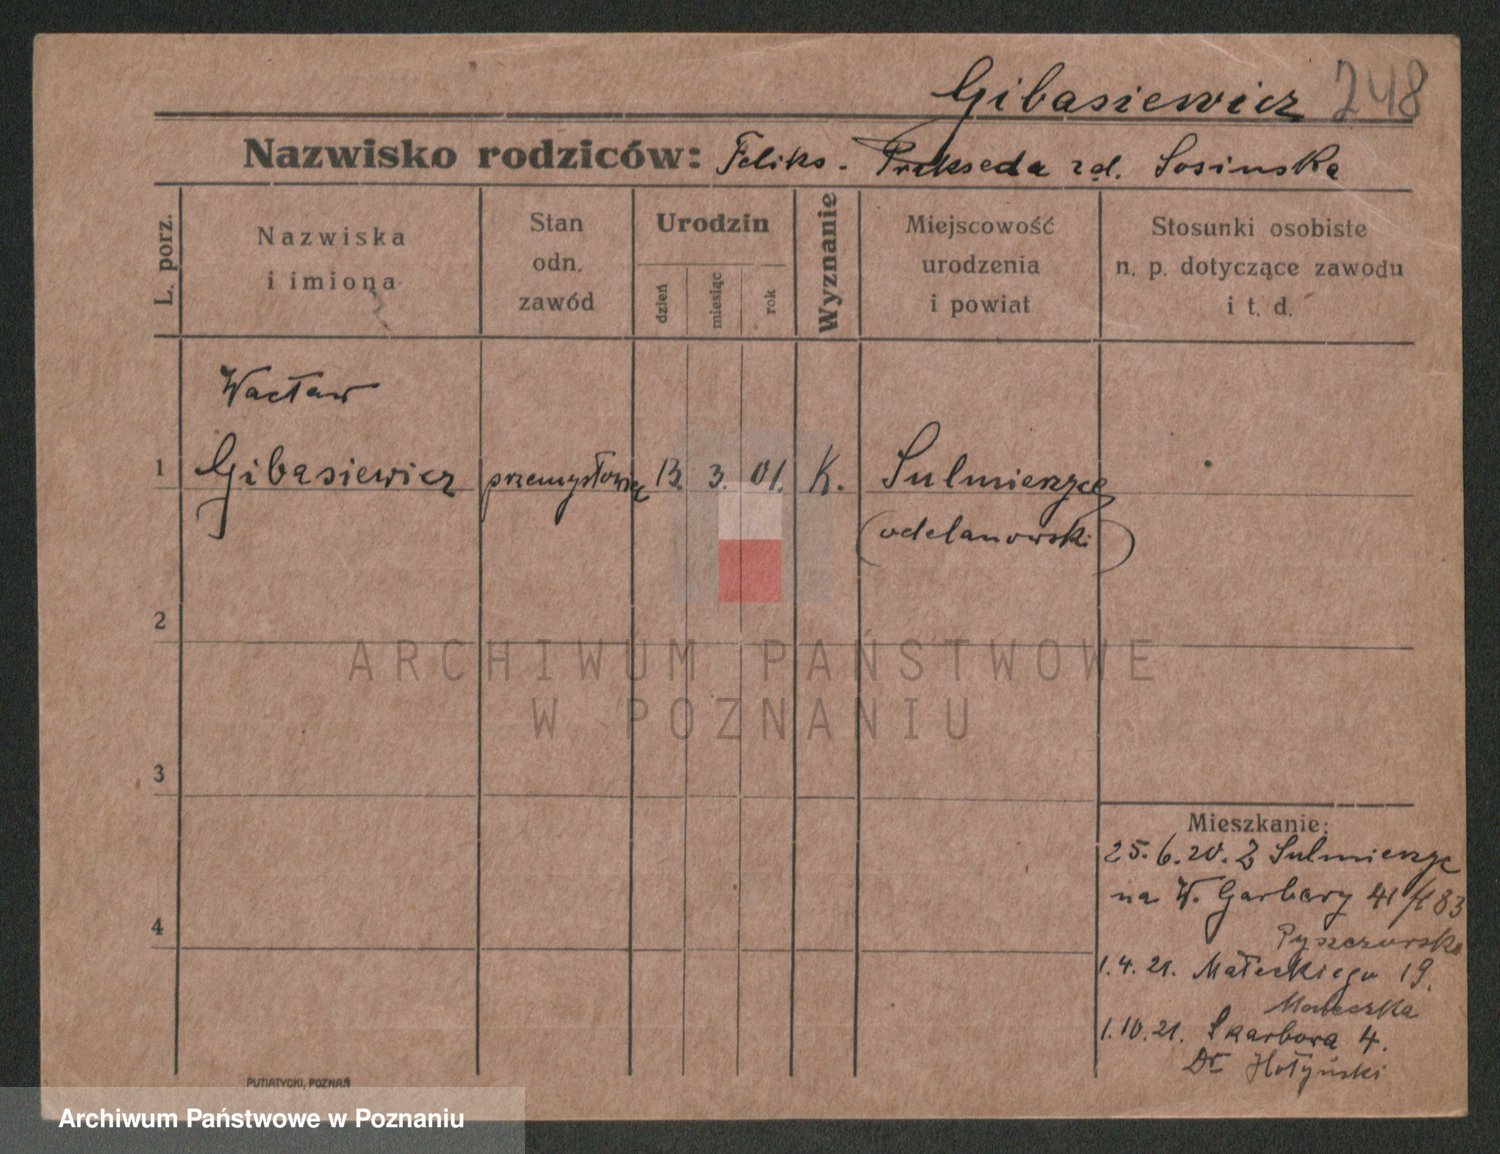 Gibasiewicz 248
Nazwisko rodziców: Feliks - Prakseda zd. Sosinska
L. porz.
Nazwiska
i imiona
Stan
odn.
zawód
Urodzin
dzień
miesiąc
rok
Wyznanie
Miejscowość
urodzenia
i powiat
Stosunki osobiste
n. p. dotyczące zawodu
i t. d.
Wacław
1 Gibasiewicz przemysłowiec 13. 3. 01. K. Sulmierzyce
(odolanowski)
2
3
4
Mieszkanie:
25.6.20. Z Sulmierzyc
na W. Garbary 41 83
1.4.21. Małeckiego 19.
1.10.21. Skarbowa 4.
Dr Hołyński
PUTIATYCKI, POZNAŃ
ARCHIWUM PAŃSTWOWE
W POZNANIU
Archiwum Państwowe w Poznaniu